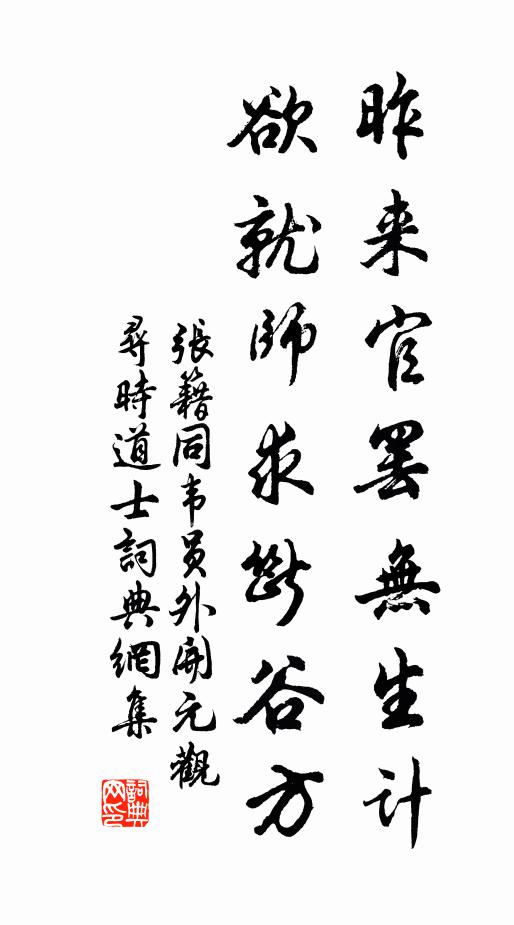 昨来官罢無生计
欲就師求斷谷方
張籍同韦员外開元觀
尋時道士詞典網集
詞典网印